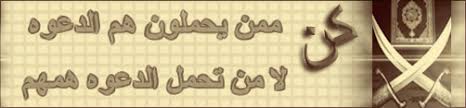 كن ممن يحملون هم الدعوه
لا من تحمل الدعوه همهم